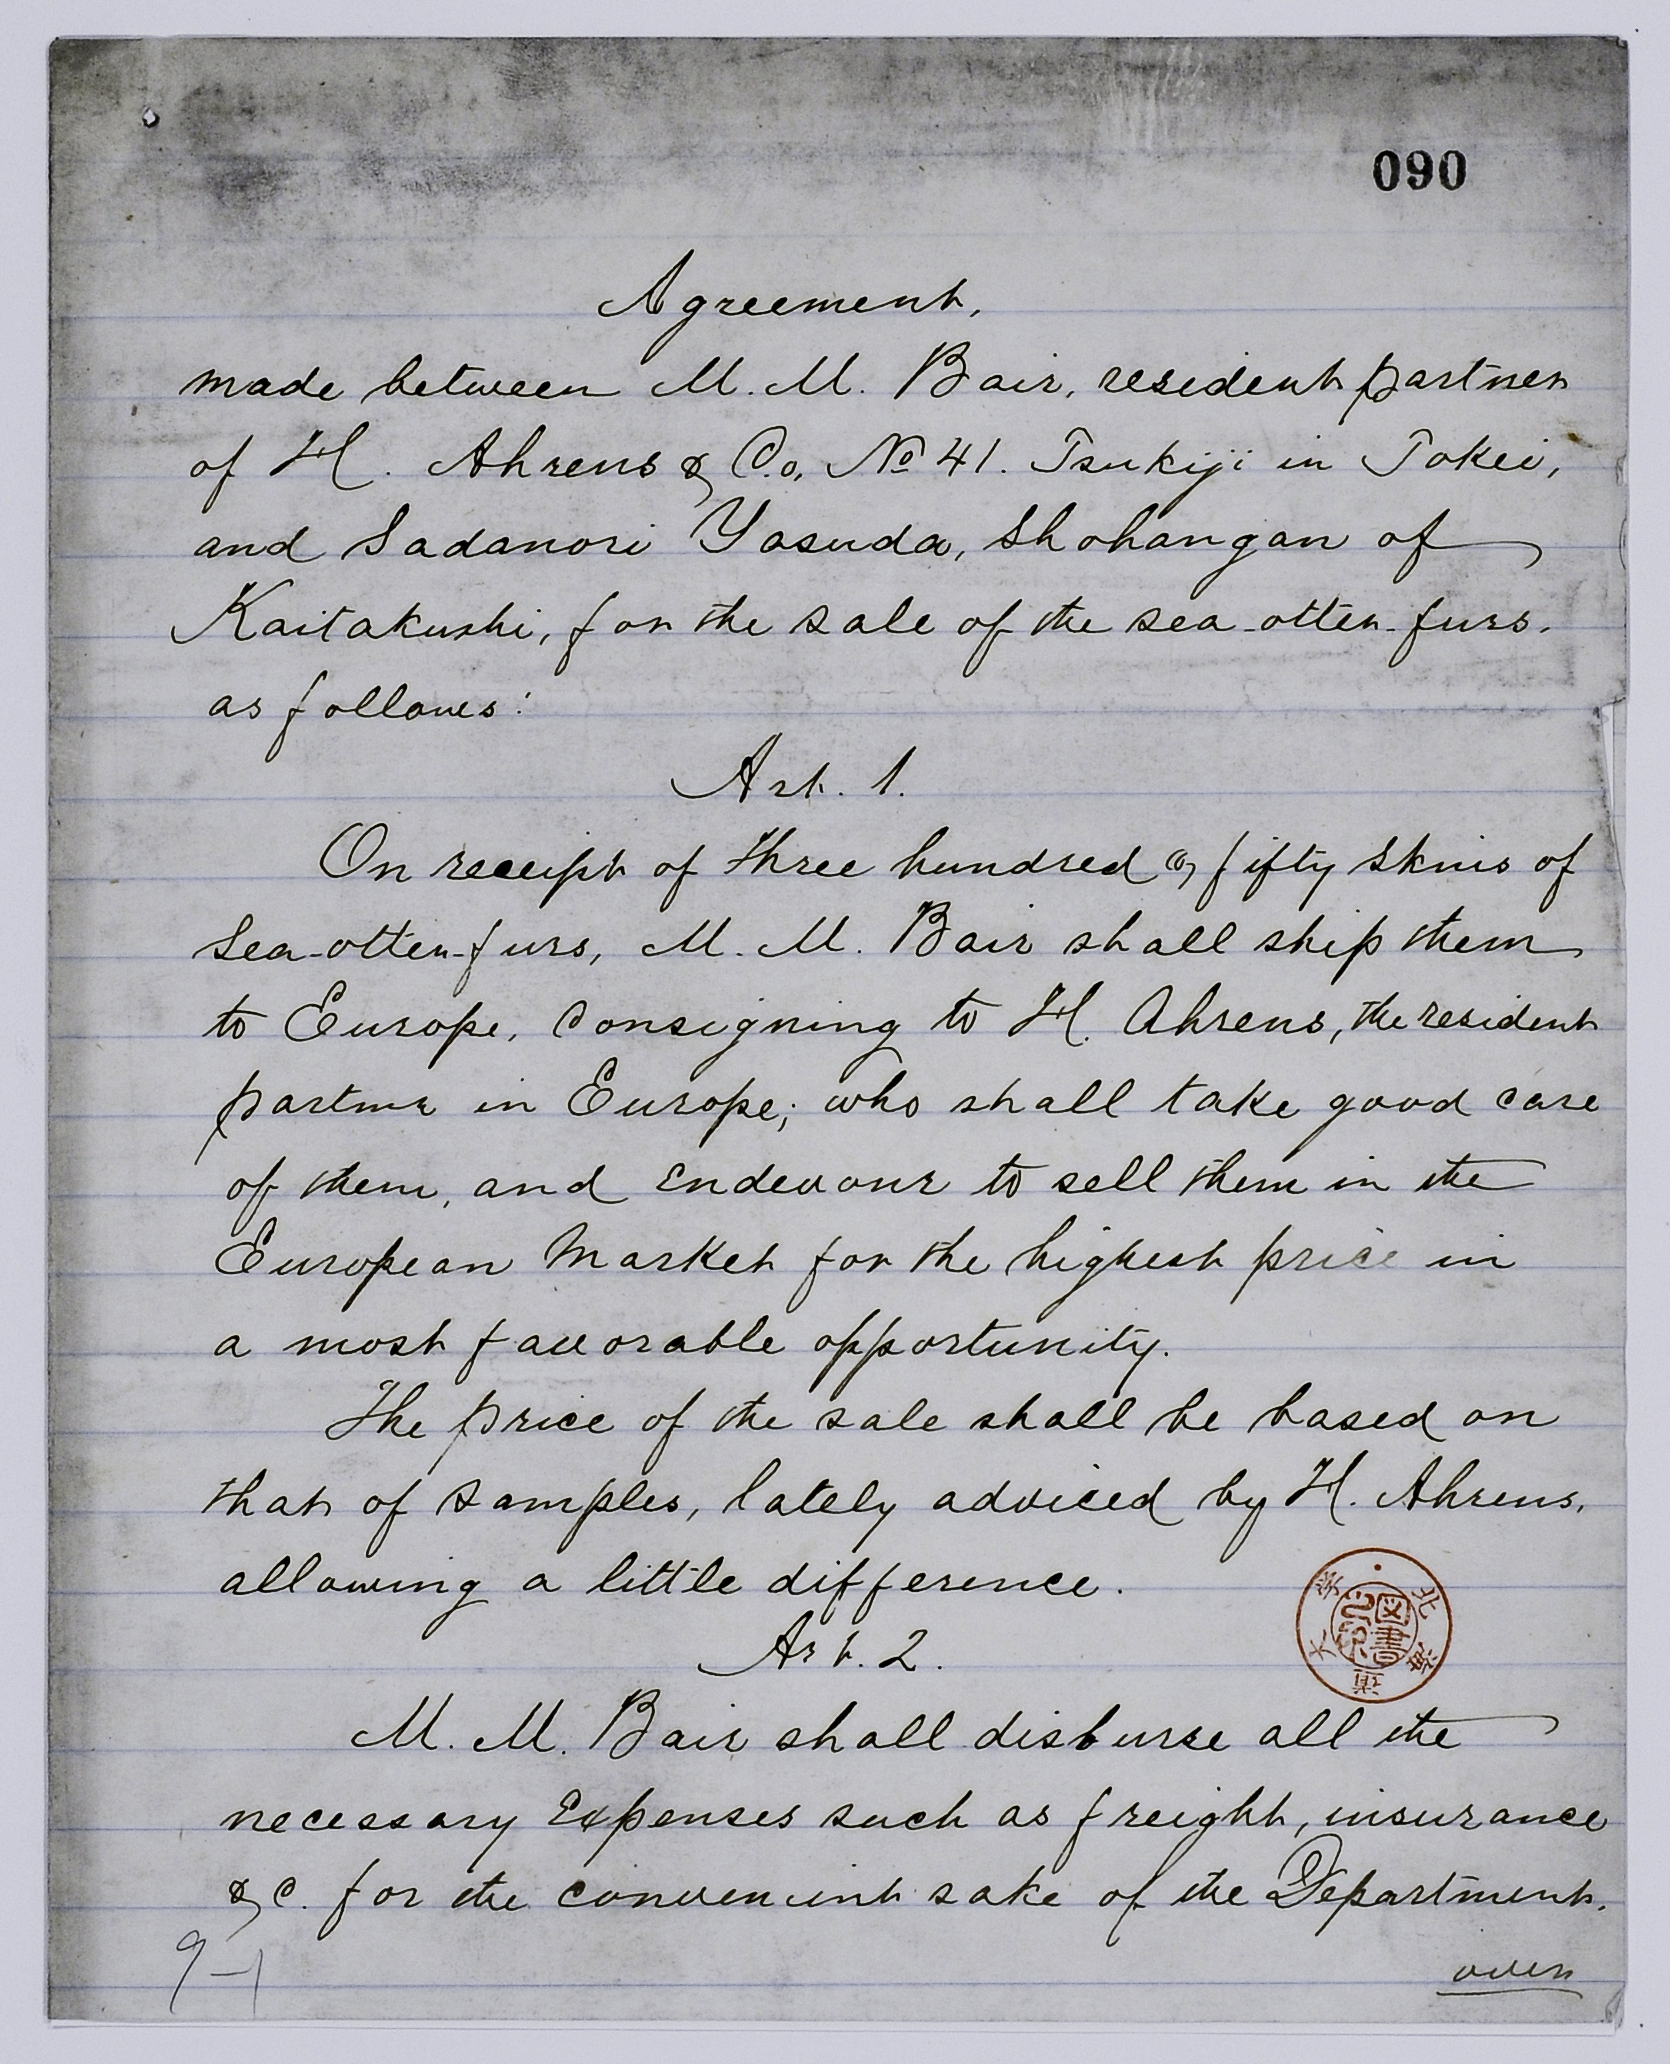 090
Agreement,
made between M. M. Bair, resident partner
of H. Ahrens & Co, No 41. Tsukiji in Tokei,
and Sadanori Yasuda, Shohangan of
Kaitakushi, for the sale of the sea-otter-furs.
as follows:
Art. 1.
On receipt of three hundred & fifty skins of
Sea-otter-furs, M. M. Bair shall ship them
to Europe, Consigning to H. Ahrens, the resident
partner in Europe; who shall take good care
of them, and endevour to sell them in the
European Market for the highest price in
a most favorable opportunity.
The price of the sale shall be based on
that of samples, lately adviced by H. Ahrens,
allowing a little difference.
Art. 2.
M. M. Bair shall disburse all the
necessary Expenses such as freight, insurance
& c. for the convenient sake of the Department.
over
9-1
北海道大学
図書之印